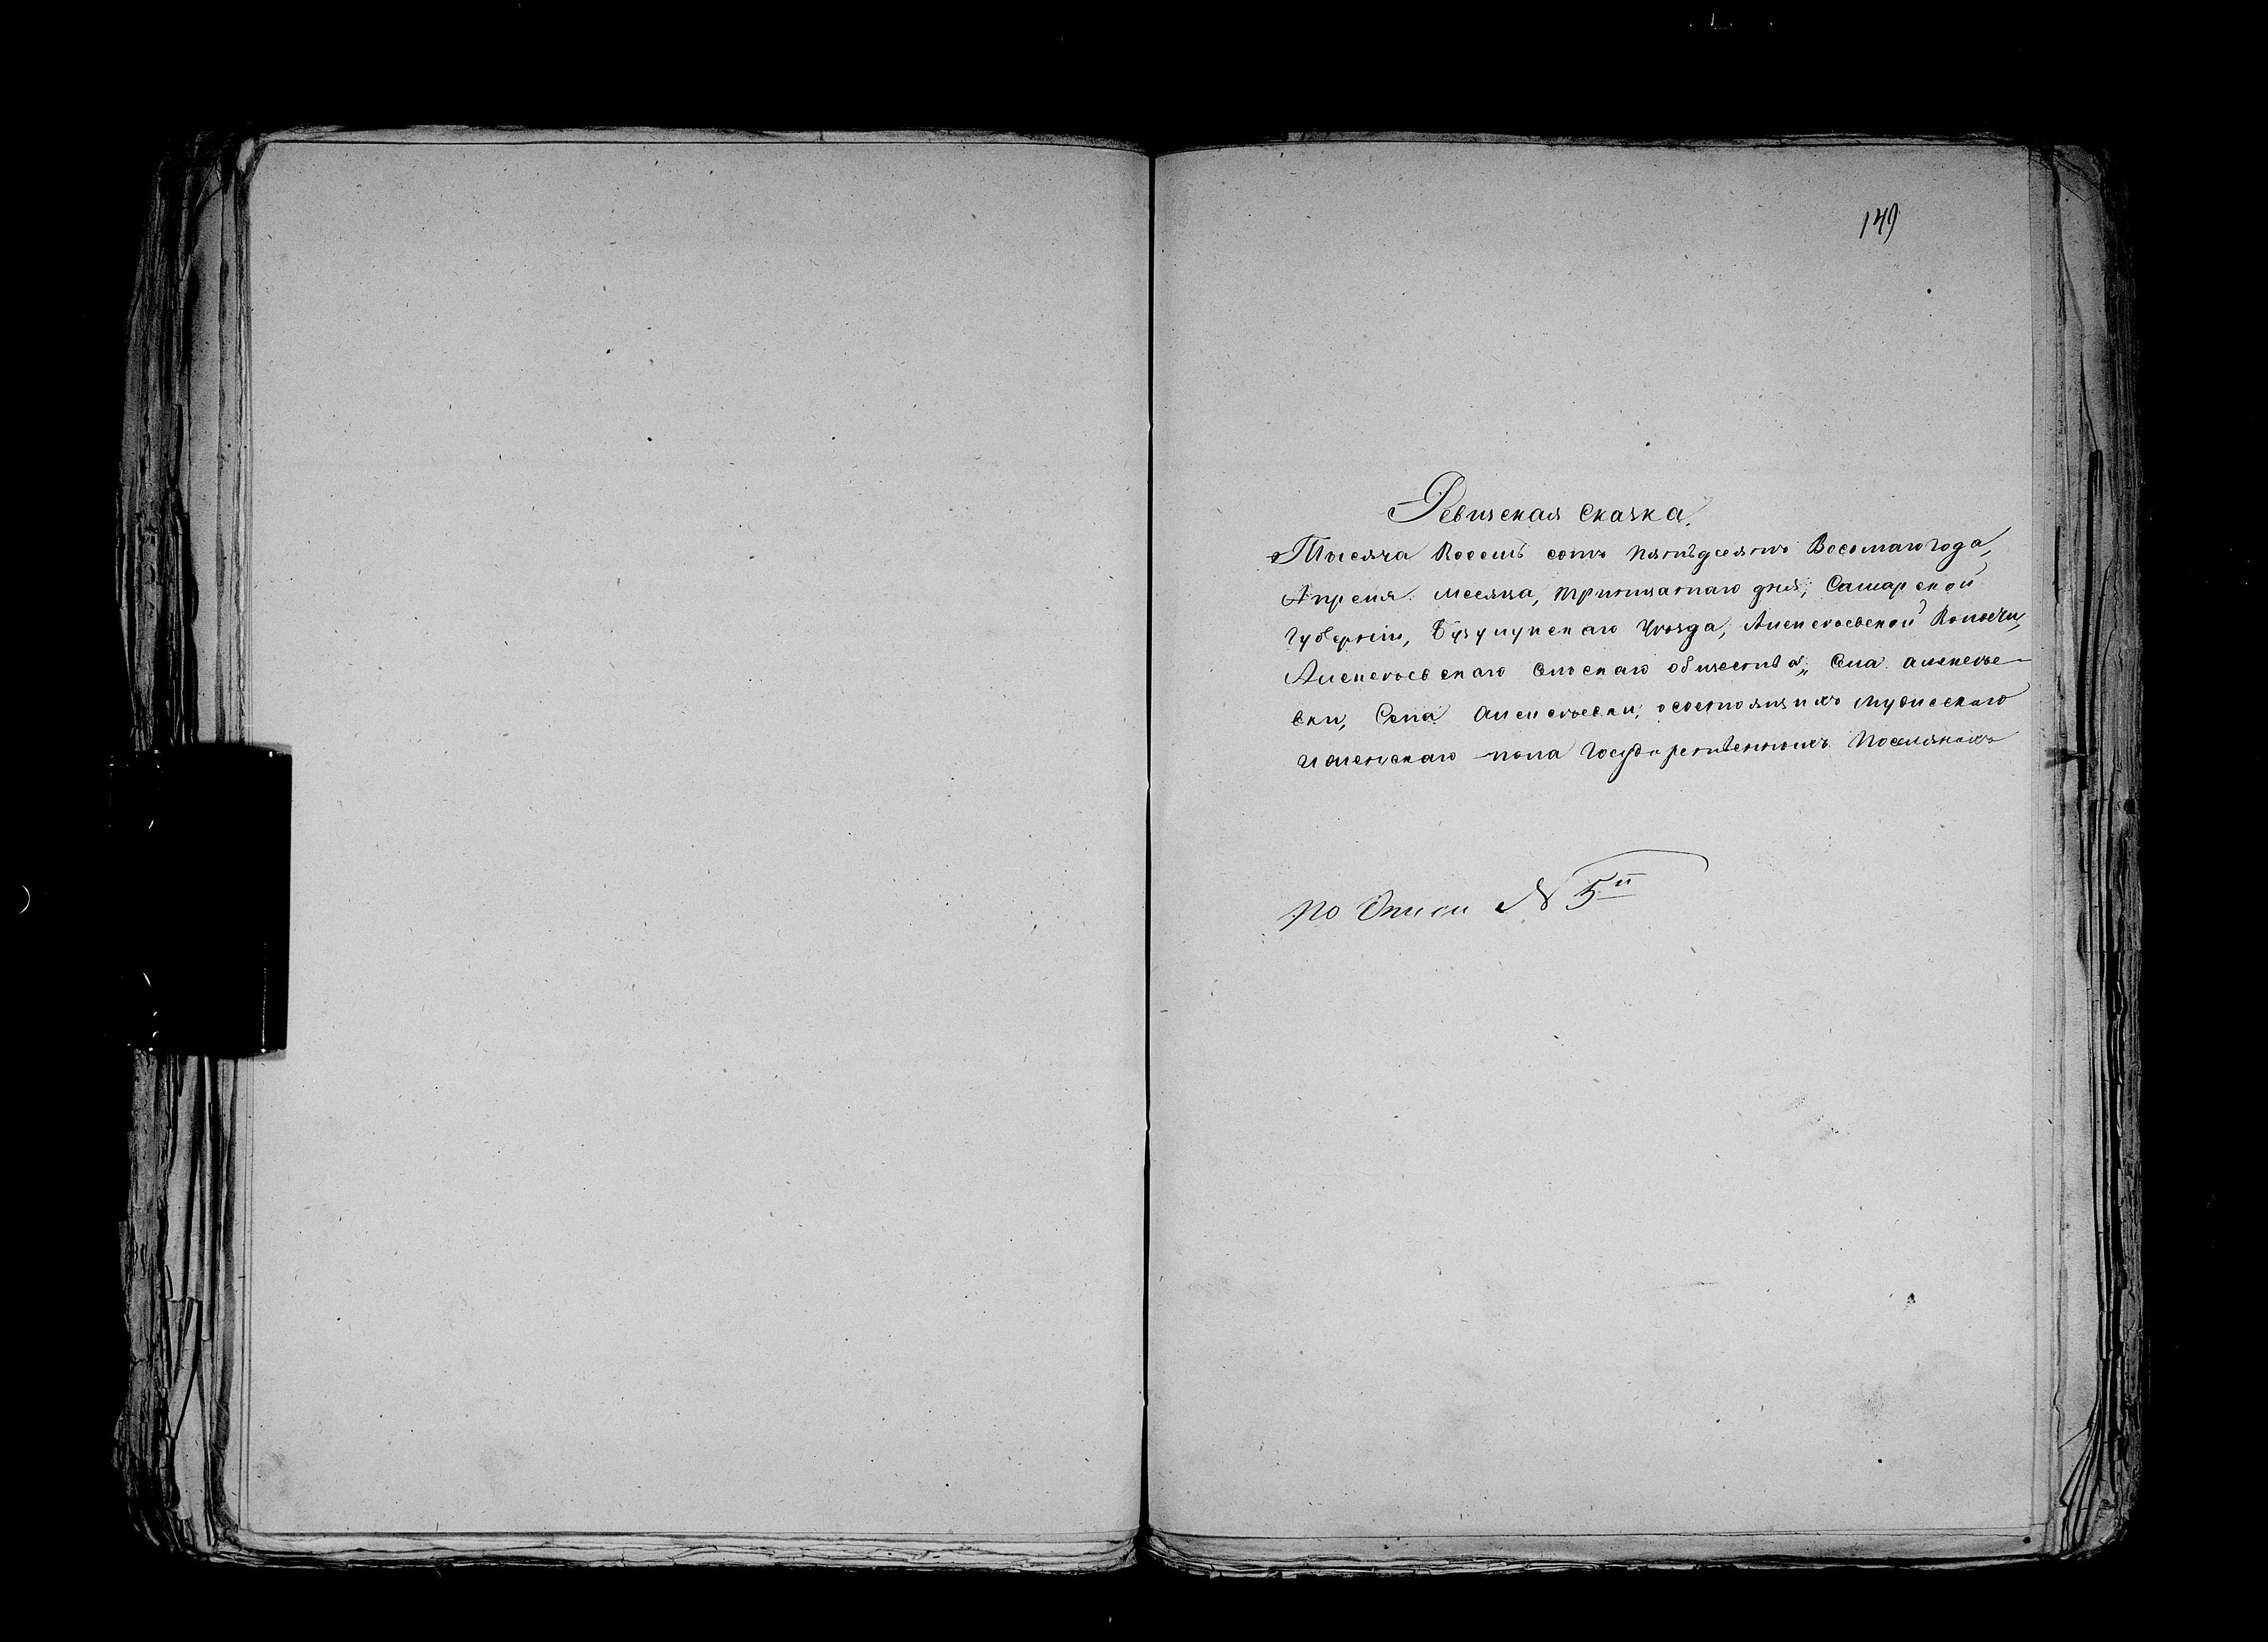 149
Ревизская сказка.
Тысяча Восемь сотъ пятьдесятъ Восьмаго года,
Апреля месяца, тритцатаго дня, Самарской
губерніи, Бузулукскаго Уезда, Алексеевской Волости,
Алексеевскаго Сельскаго общества, Села алексее-
вки, Села Алексеевки, о состоящихъ мужескаго
и женскаго пола Государственныхъ Поселянахъ
по Описи N 5й